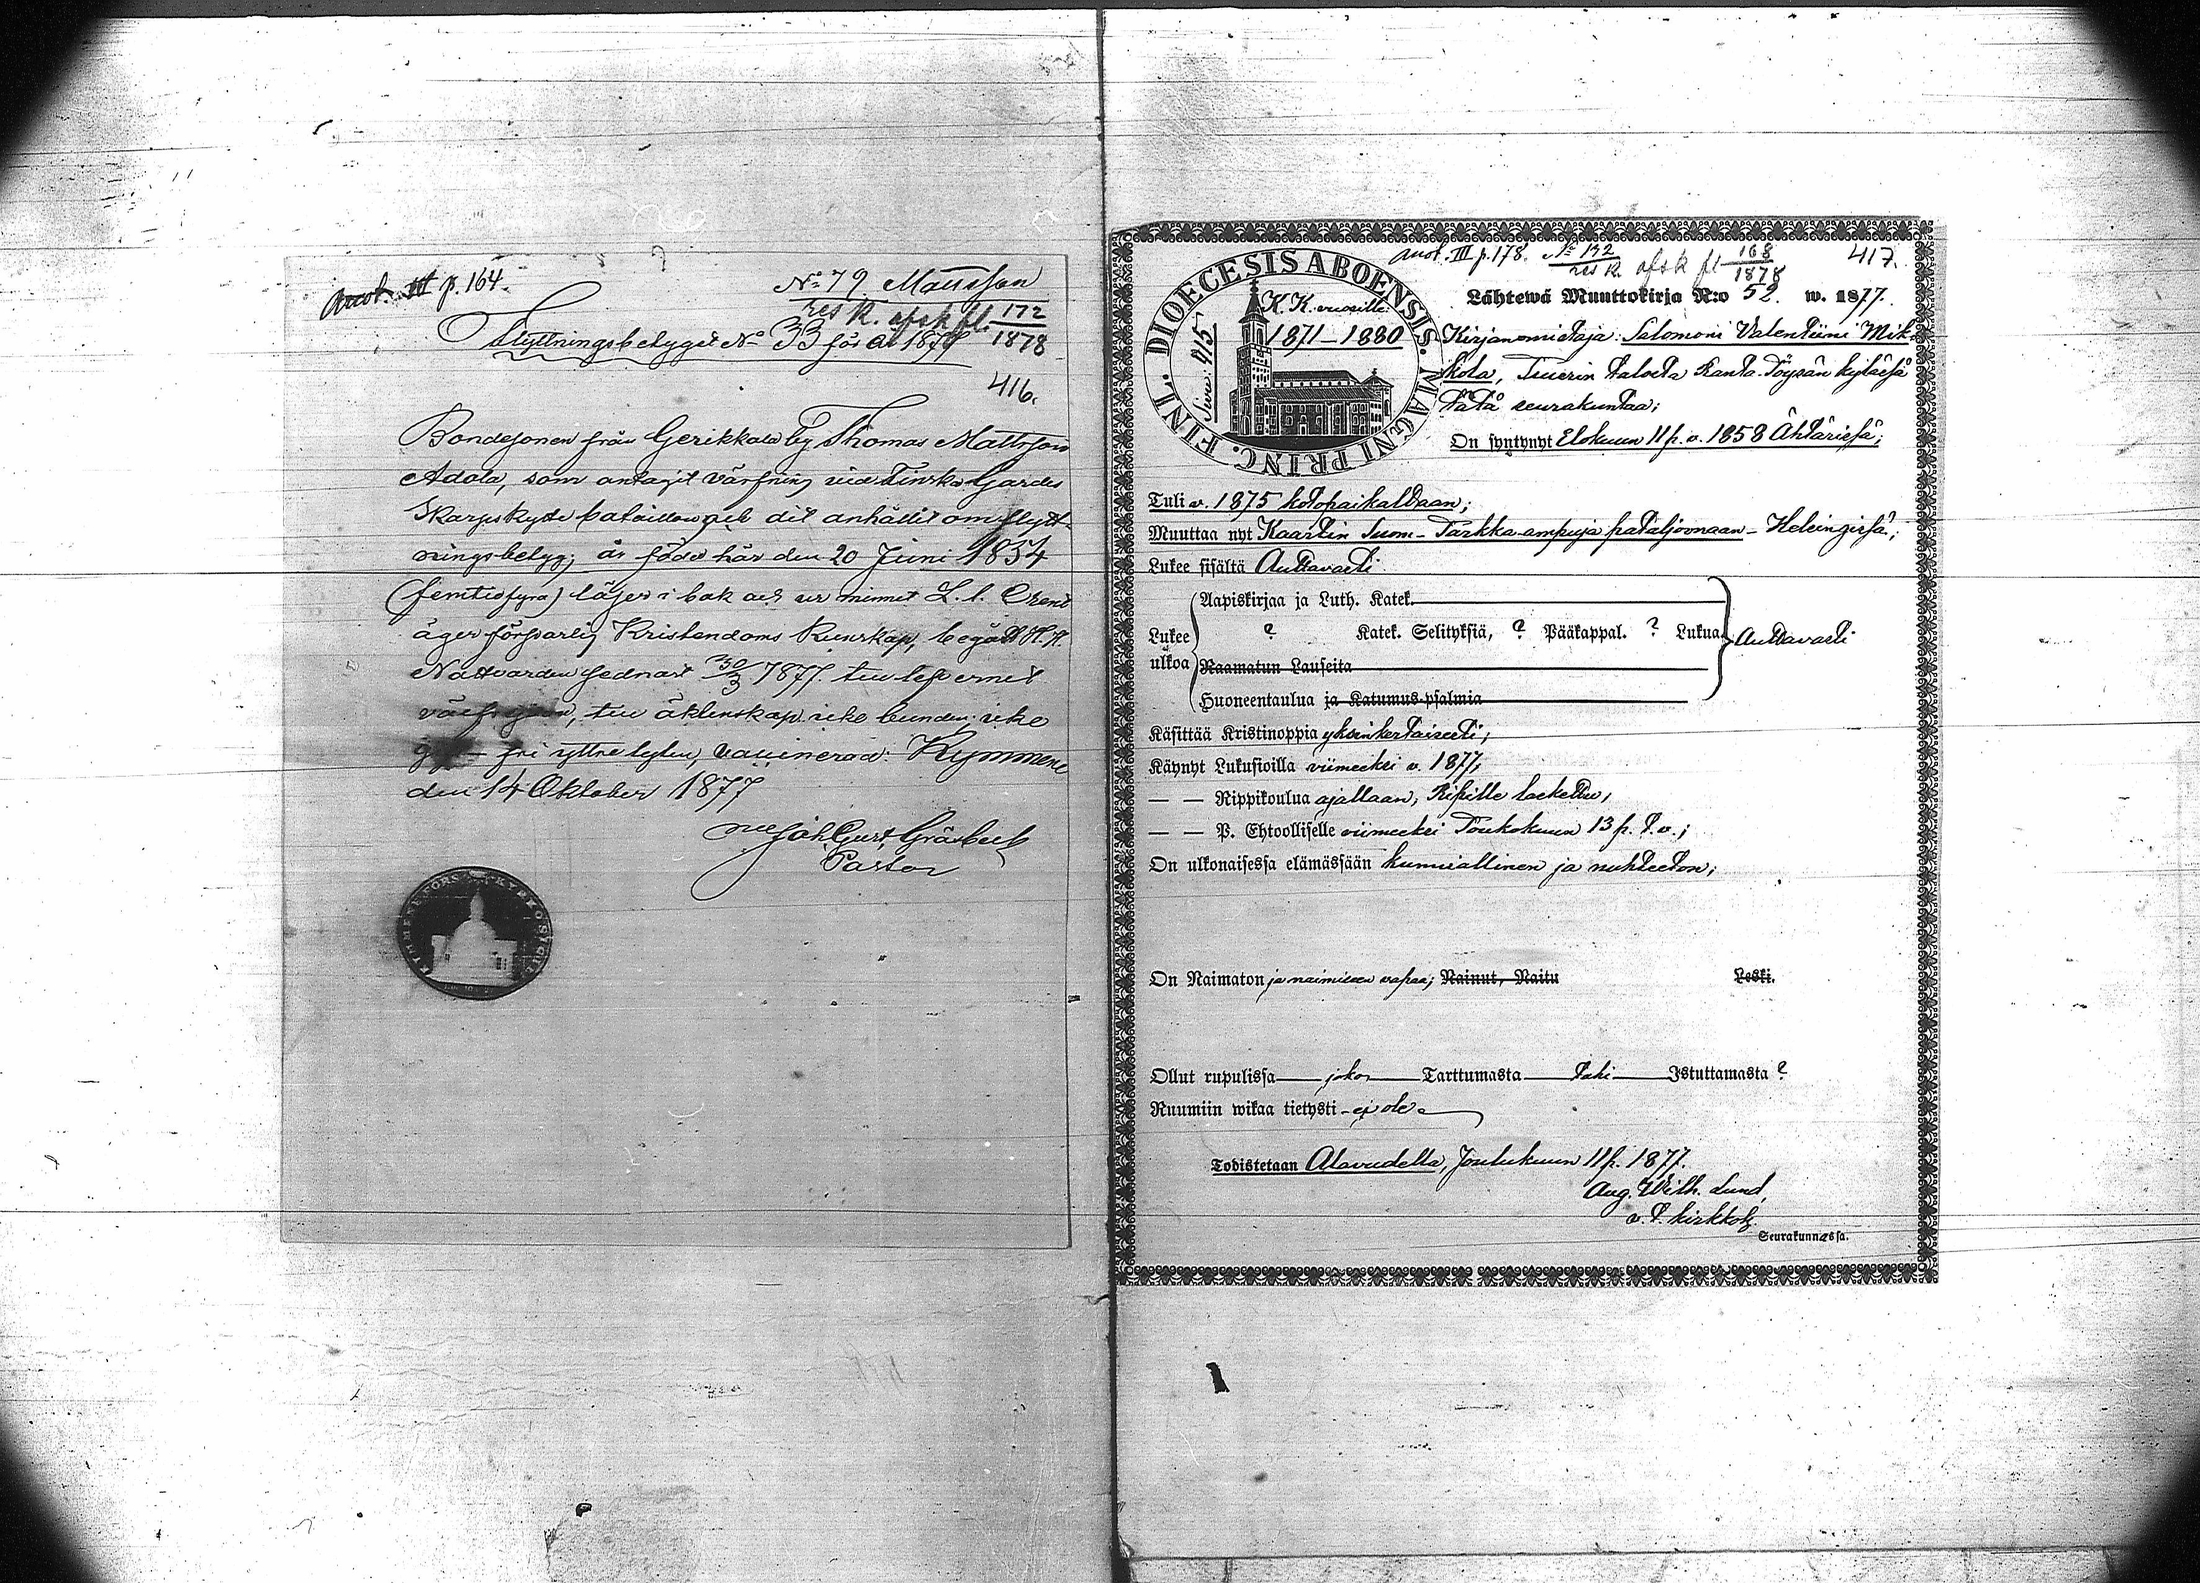 Anot. III p. 164.
No 79 Mattsson
res k. afsk fl. 172/1878
Flyttningsbetyget No 33 för år 1877
416.
Bondesonen från Gerikkala by Thomas Mattsson
Adola, som antagit värfning vid Finska Gardes
Skarpskytte bataillon och dit anhållit om flytt-
ningsbetyg, är född här den 20 Juni 1854
(femtiofyra) läser i bok och ur minnet L. l.
äger försvarlig Kristendoms Kunskap, begått H. H.
Nattvarden sednast 30/3 1877. till
till äktenskap icke bunden, icke
fri yttre lyten, vaccinerad: Kymmene
den 14 Oktober 1877
Joh. Gust. Gråsbeck
Pastor
Anot. III p. 178. No 132
res k. afsk fl 168/1878
417.
FINL. DIOECESIS ABOENSIS. MAGNI PRINC.
K. K. vuosille
1871–1880
Sivu: 415
Lähtewä Muuttokirja N:o 52. w. 1877.
Kirjanomistaja: Salomoni Valentiini Mik-
kola, Tuurin talosta Ranta-Töysän kylässä
tätä seurakuntaa;
On syntynyt Elokuun 11 p. v. 1858 Ähtärissä;
Tuli v. 1875 kotopaikaltaan;
Muuttaa nyt Kaartin Suom. Tarkka-ampuja pataljoonaan – Helsingissä;
Lukee sisältä Auttavasti
Aapiskirjaa ja Luth. Katek.
Lukee ? Katek. Selityksiä, ? Pääkappal. ? Lukua. Auttavasti
ulkoa Raamatun Lauseita
Huoneentaulua ja Katumus-psalmia
Käsittää Kristinoppia yksinkertaisesti;
Käynyt Lukusioilla viimeeksi v. 1877;
— — Rippikoulua ajallaan, Ripille laskettu;
— — P. Ehtoolliselle viimeeksi Toukokuun 13 p. t. v.;
On ulkonaisessa elämässään kunniallinen ja nuhteeton;
On Naimaton ja naimiseen vapaa; Nainut, Naitu Leski.
Ollut rupulissa joko Tarttumasta tahi Istuttamasta ?
Ruumiin wikaa tietysti – ei ole
Todistetaan Alavudella, Joulukuun 11 p. 1877.
Aug. Wilh. Lund,
v. t. kirkkoh.
Seurakunnassa.